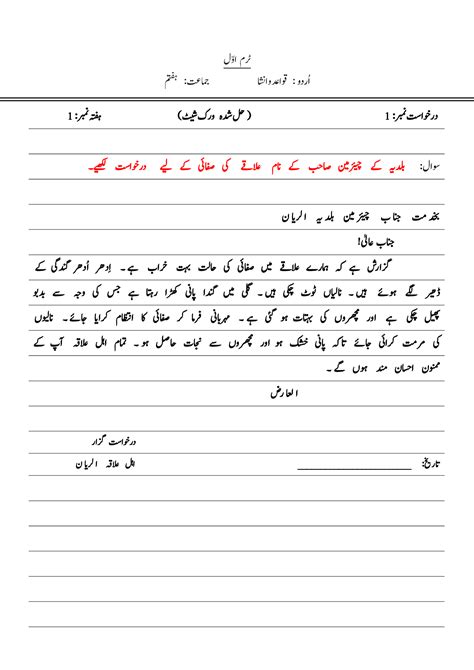 ٹرم اوّل
اُردو : قواعد و انشا جماعت: ہفتم
درخواست نمبر: 1 (حل شدہ ورک شیٹ) ہفتہ نمبر: 1
سوال: بلدیہ کے چیئرمین صاحب کے نام علاقے کی صفائی کے لیے درخواست لکھیے۔
بخدمت جناب چیئرمین بلدیہ الریان
جناب عالی!
گزارش ہے کہ ہمارے علاقے میں صفائی کی حالت بہت خراب ہے۔ اِدھر اُدھر گندگی کے
ڈھیر لگے ہوئے ہیں۔ نالیاں ٹوٹ چکی ہیں۔ گلی میں گندا پانی کھڑا رہتا ہے جس کی وجہ سے بدبو
پھیل چکی ہے اور مچھروں کی بہتات ہو گئی ہے۔ مہربانی فرما کر صفائی کا انتظام کرایا جائے۔ نالیوں
کی مرمت کرائی جائے تاکہ پانی خشک ہو اور مچھروں سے نجات حاصل ہو۔ تمام اہل علاقہ آپ کے
ممنون احسان مند ہوں گے۔
العارض
درخواست گزار
تاریخ: ____________________ اہل علاقہ الریان